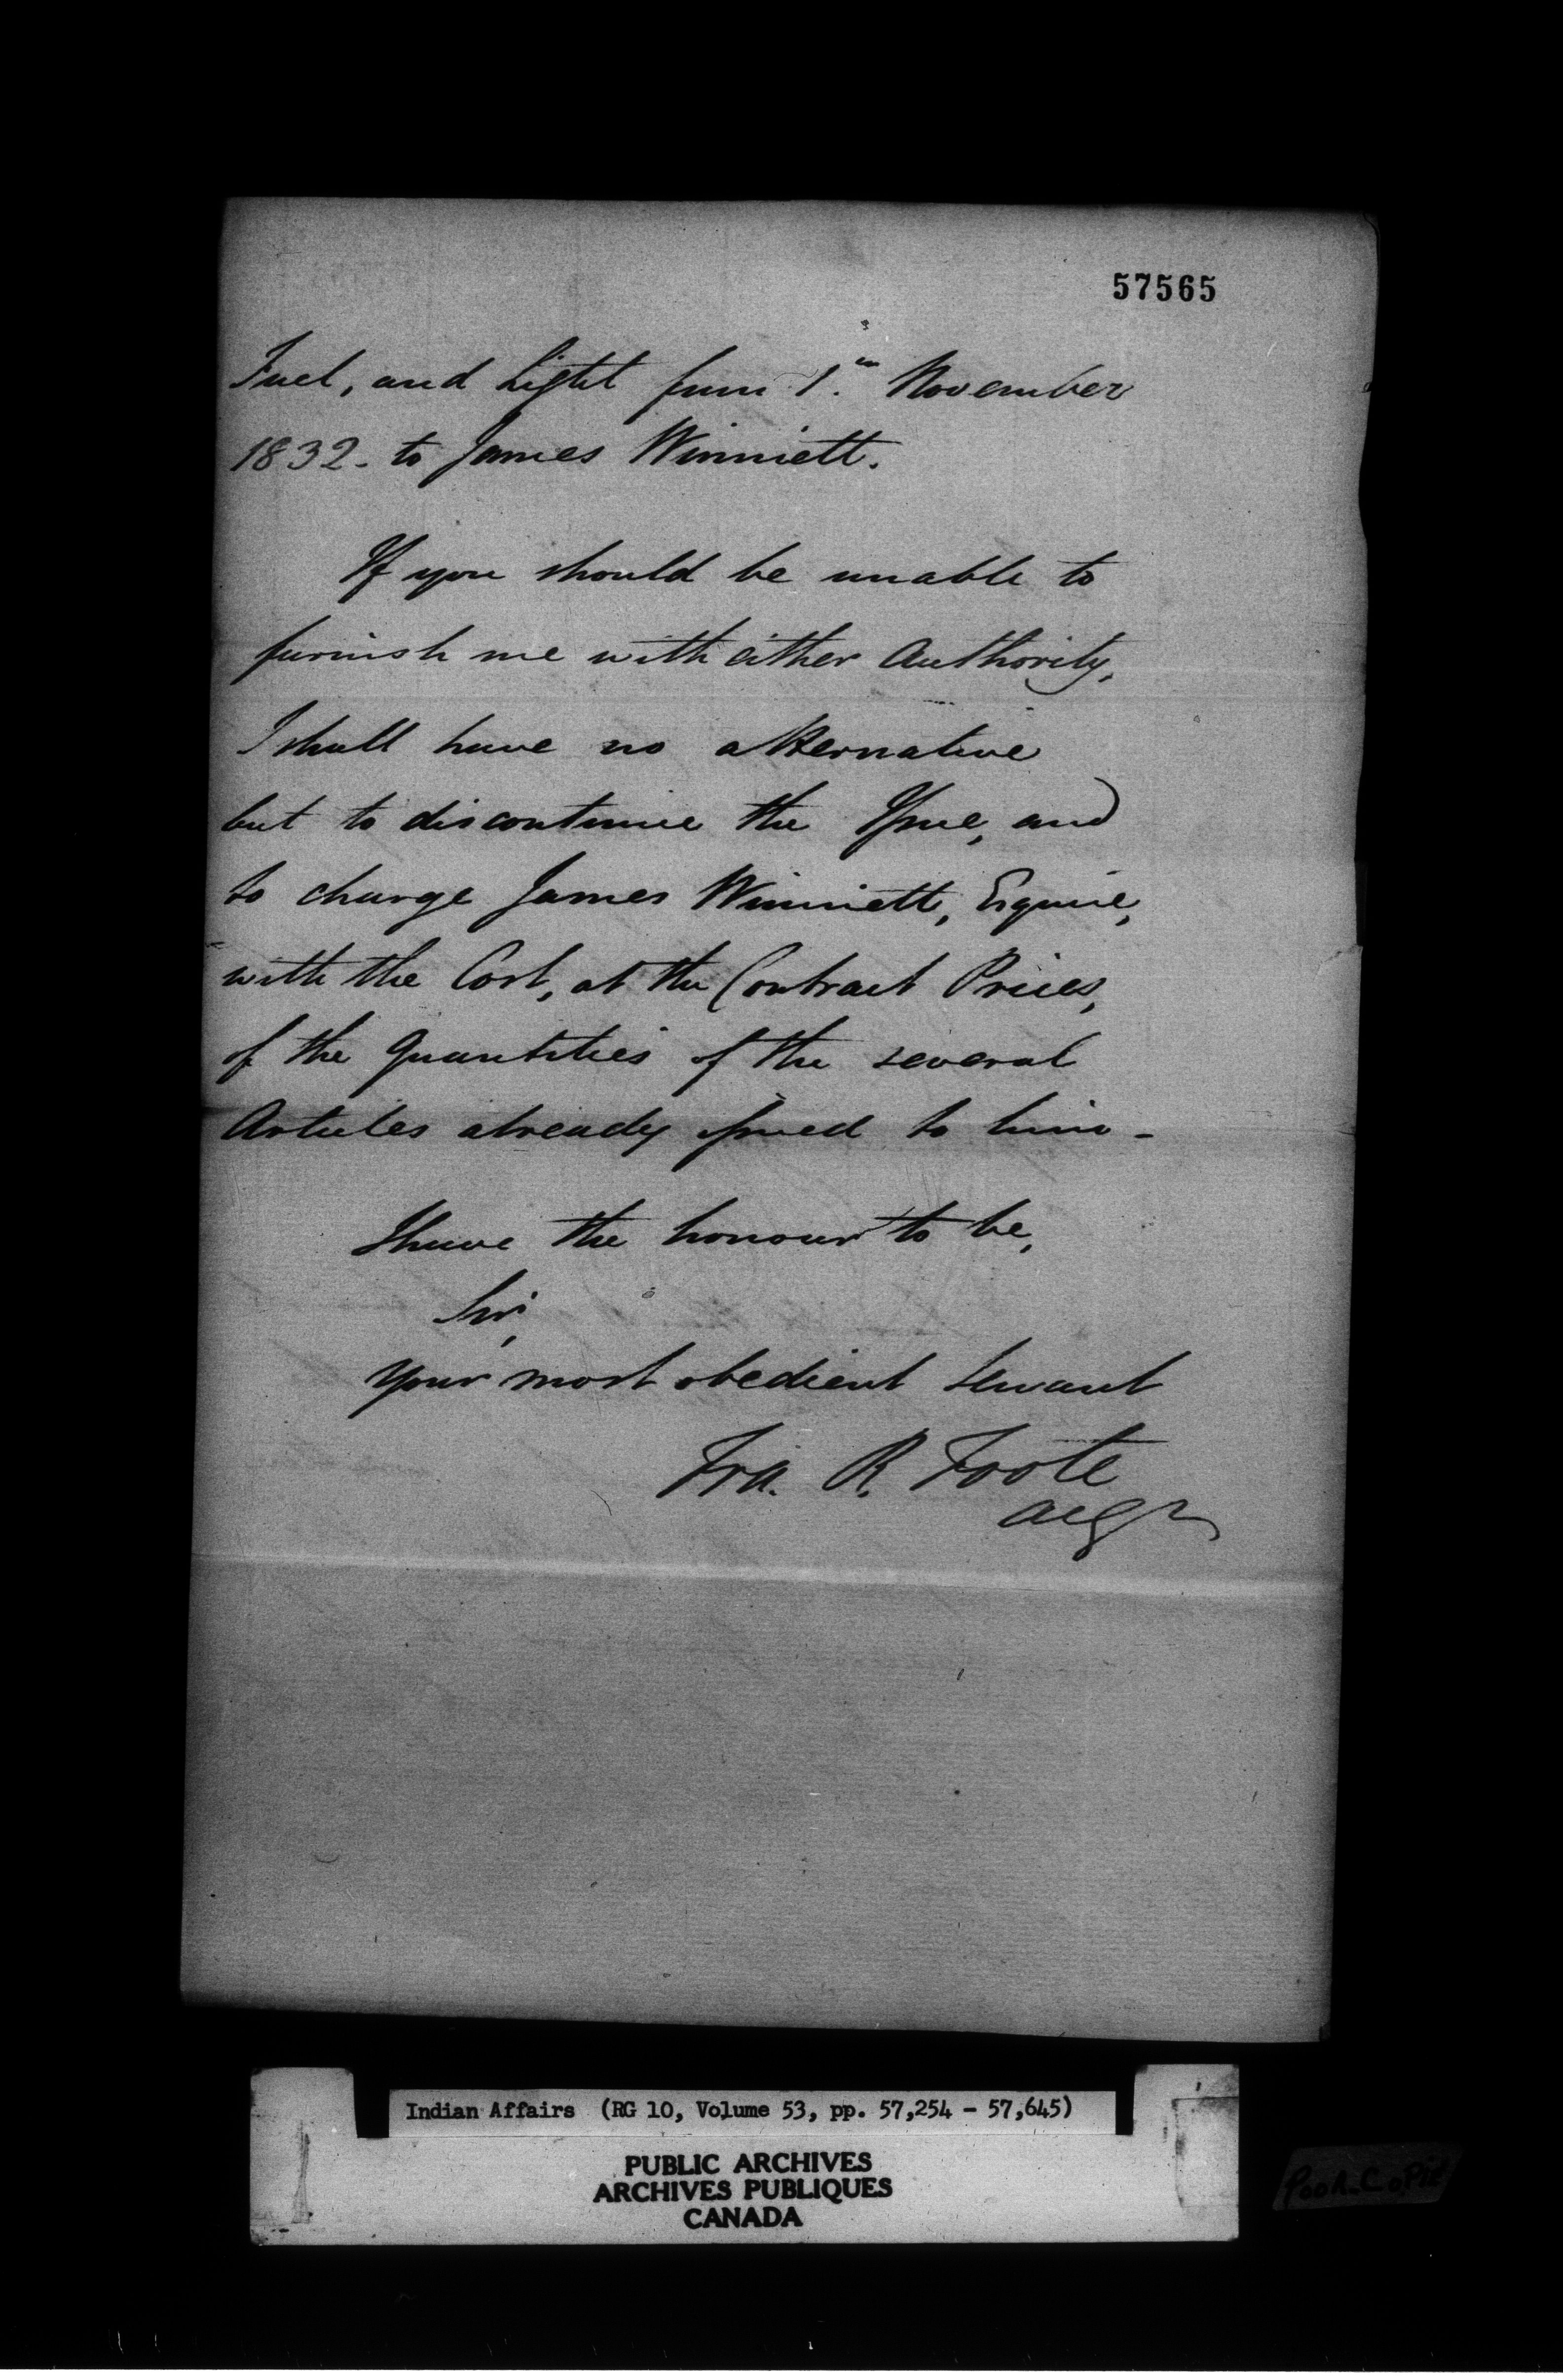 57565
Fuel, and Light from 1.st November
1832. to James Winniett.
If you should be unable to
furnish me with either Authority,
I shall have no alternative
but to discontinue the Issue, and
to charge James Winniett, Esquire,
with the Cost, at the Contract Prices,
of the Quantities of the several
Articles already issued to him -
I have the honour to be,
Sir,
Your most obedient Servant
Fra. R. Foote
Indian Affairs (RG 10, Volume 53, pp. 57,254 - 57,645)
PUBLIC ARCHIVES
ARCHIVES PUBLIQUES
CANADA